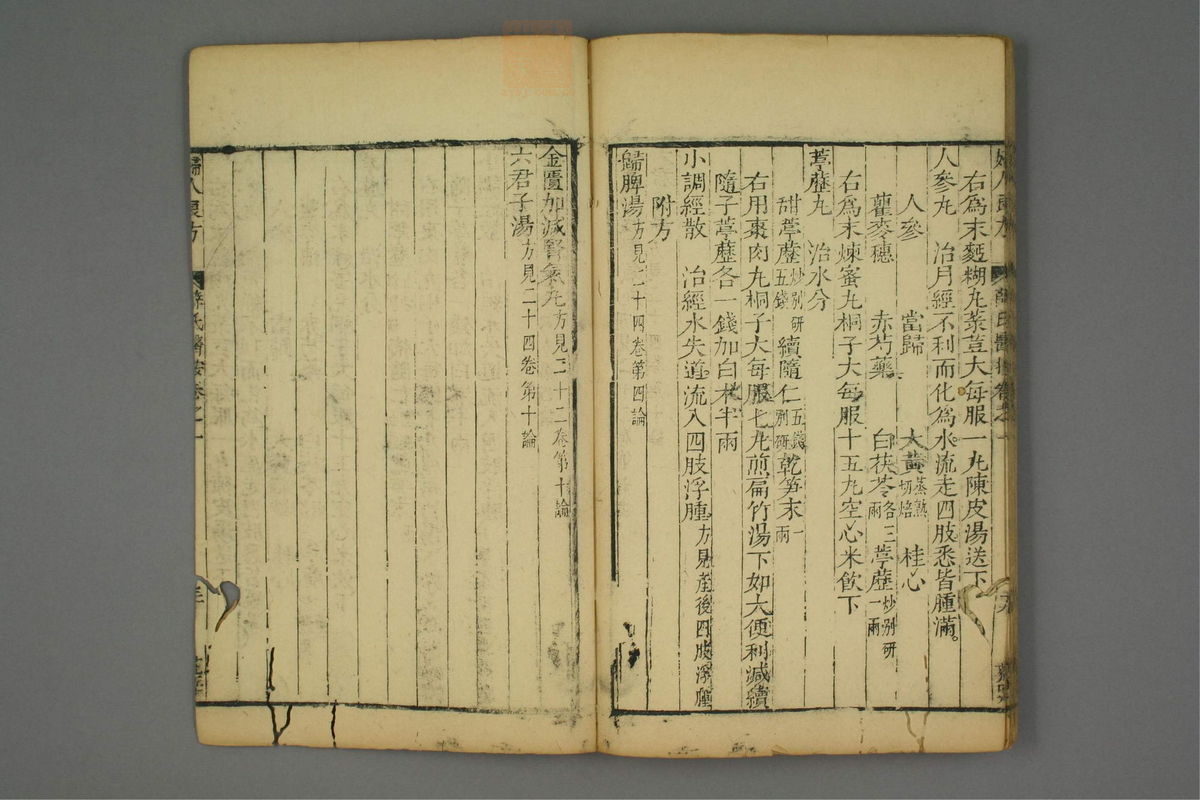 婦人良方 薛氏醫按卷之一
右為末麪糊丸菉荳大每服一丸陳皮湯送下
人參丸 治月經不利而化為水流走四肢悉皆腫滿
人參 當歸 大黃蒸熟切焙 桂心
瞿麥穗 赤芍藥 白茯苓各三兩 葶藶炒別研一兩
右為末煉蜜丸桐子大每服十五丸空心米飲下
葶藶丸 治水分
甜葶藶炒別研五錢 續隨仁五錢別研 乾笋末一兩
右用棗肉丸桐子大每服七丸煎扁竹湯下如大便利減續
隨子葶藶各一錢加白术半兩
小調經散 治經水失道流入四肢浮腫方見產後四肢浮腫
附方
歸脾湯方見二十四卷第四論
金匱加減腎氣丸方見二十二卷第十論
六君子湯方見二十四卷第十論
婦人良方 薛氏醫按卷之一